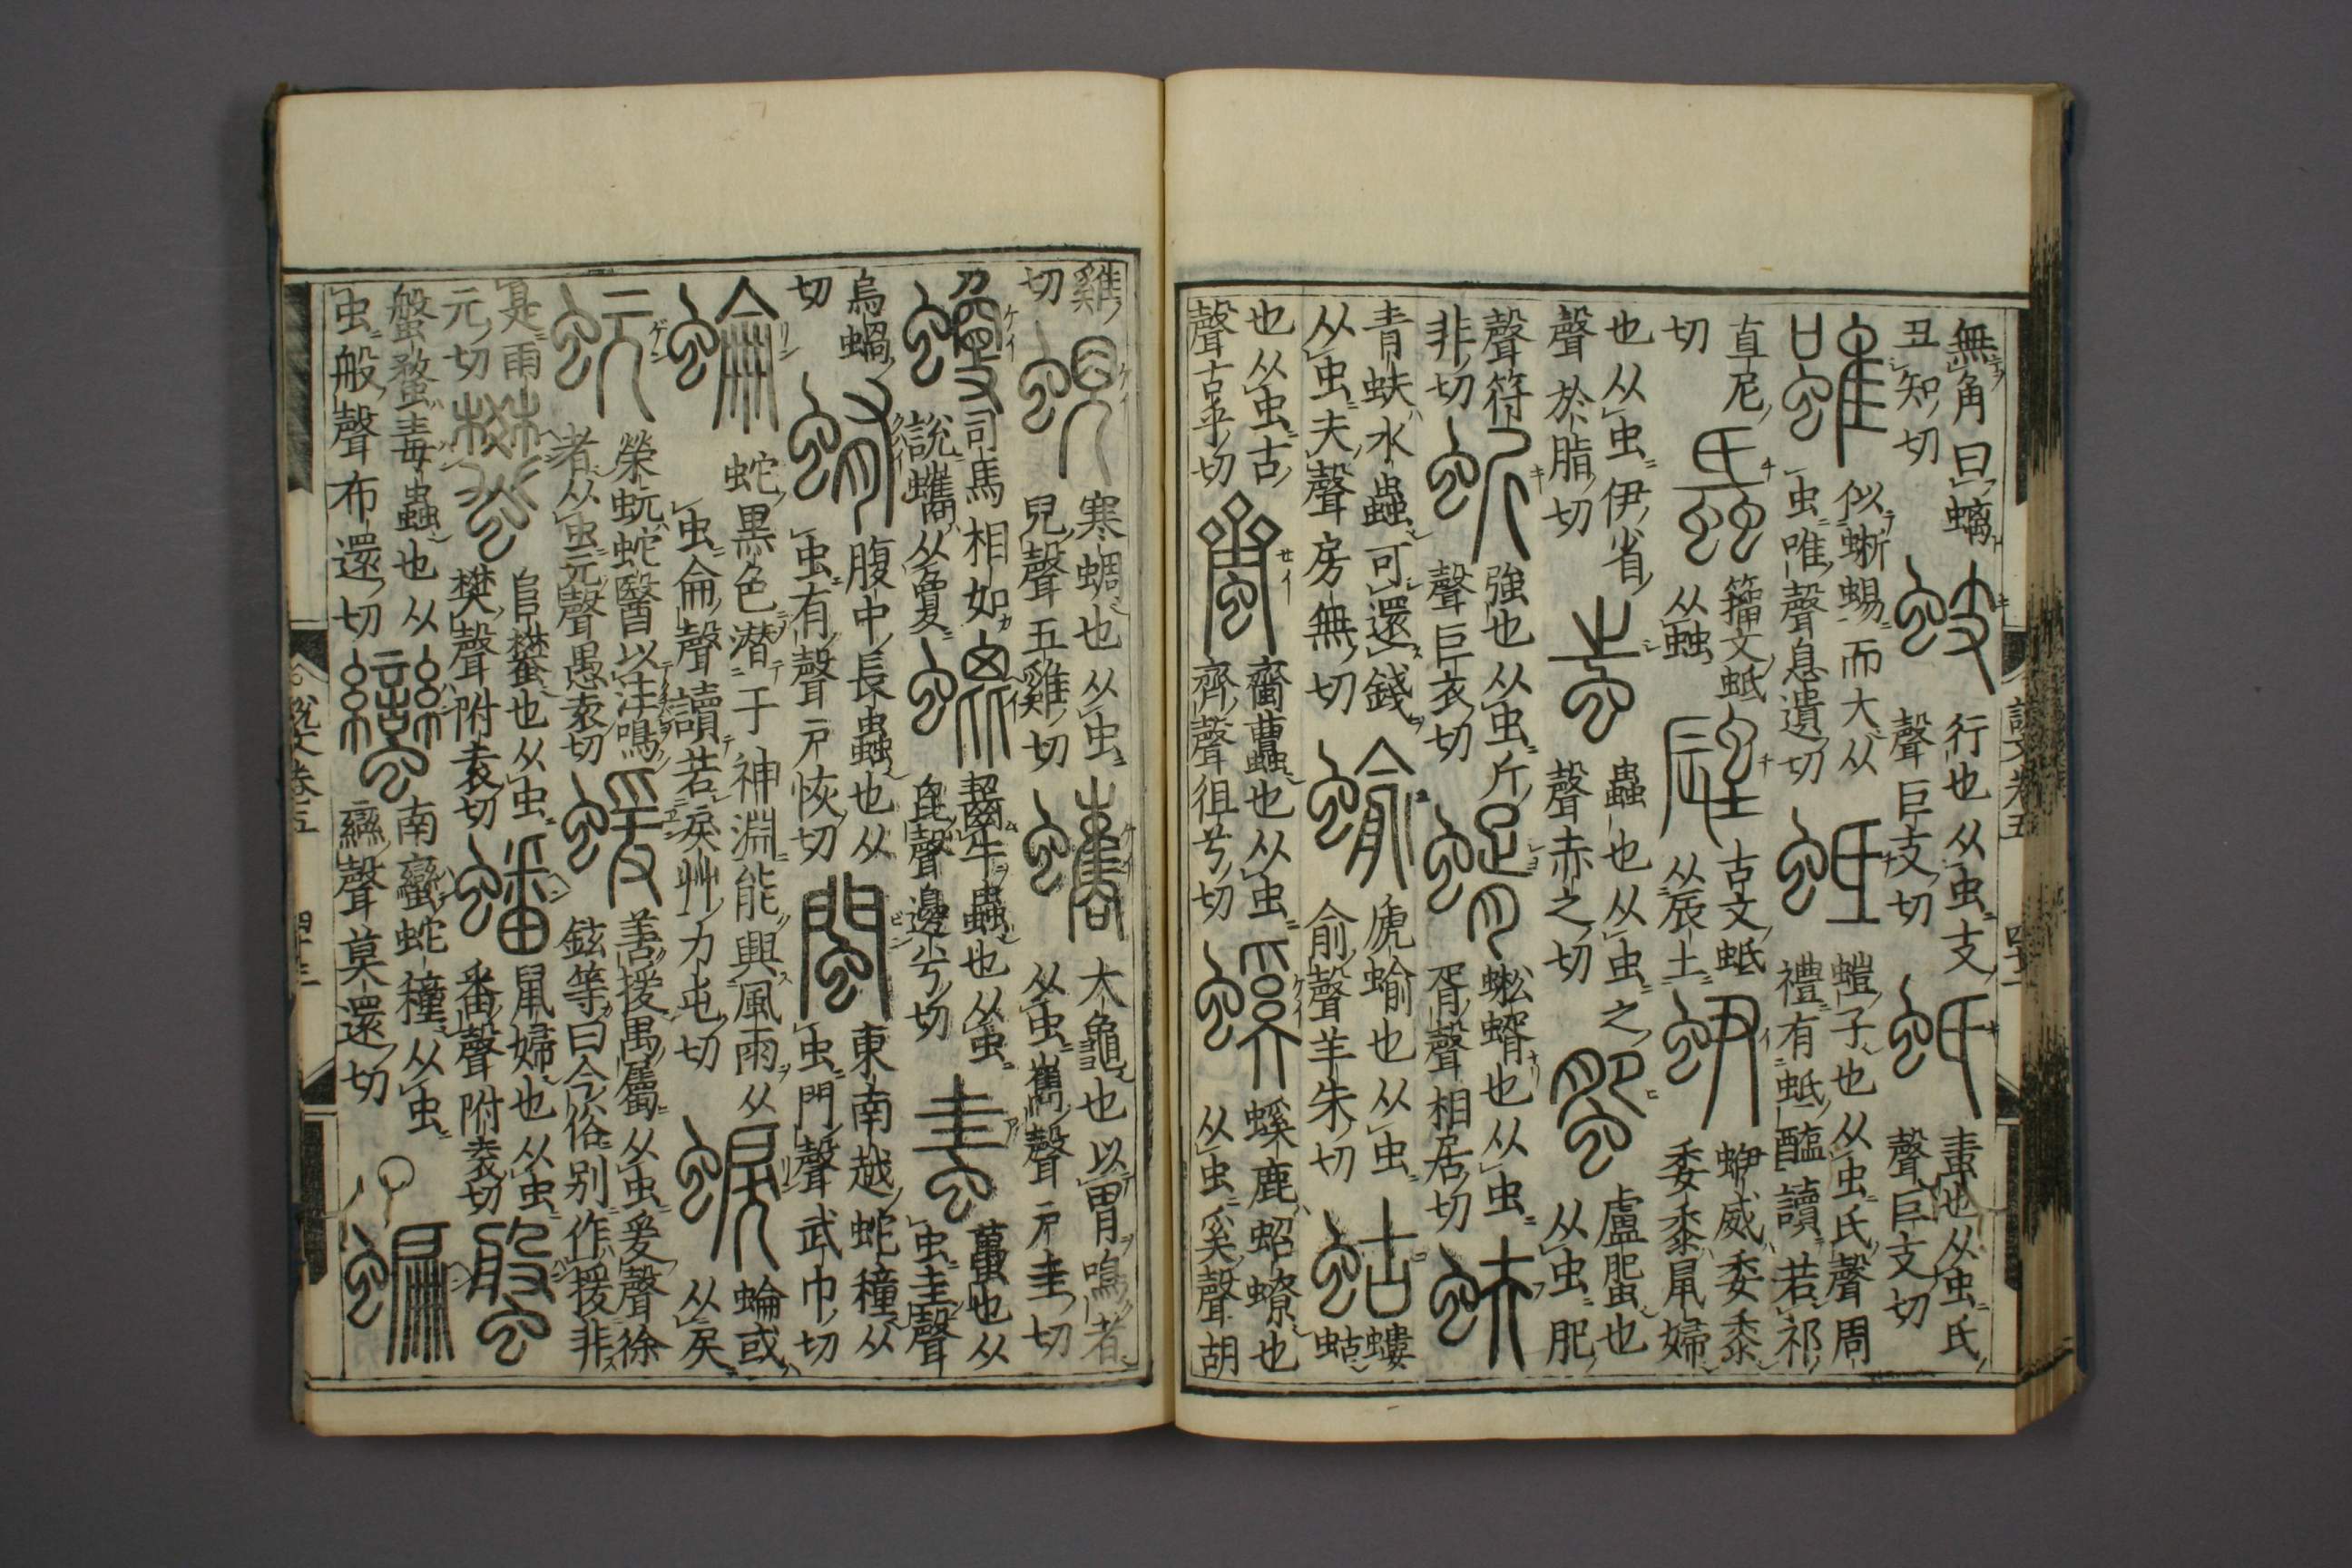 無角曰螭丑知切蚑行也从虫支聲巨支切蚔畫也从虫氏聲巨支切
雖似蜥蜴而大从虫唯聲息遺切蚳螘子也从虫氐聲周禮有蚳醢讀若祁
直尼切𧖑籒文蚳从䖵𡌺古文蚳从辰土蛜蛜威委黍委黍鼠婦
也从虫伊省聲於脂切蚩蟲也从虫之聲赤之切蜰盧蜰也从虫肥
聲符非切蚚強也从虫斤聲巨衣切蝑蜙蝑也从虫胥聲相居切蚨
青蚨水蟲可還錢从虫夫聲房無切蝓虒蝓也从虫俞聲羊朱切蛄螻蛄
也从虫古聲古乎切齏𧓉也从虫齊聲徂兮切螇螇鹿蛁蟟也从虫奚聲胡
説文卷五
雞切蜺寒蜩也从虫兒聲五雞切蠵大龜也以胃鳴者从虫巂聲戶圭切
司馬相如說蠵从敻螕齧牛蟲也从虫𣬉聲邊兮切𧊅蠆也从虫圭聲
烏蝸切蛕腹中長蟲也从虫有聲戶恢切閩東南越蛇穜从虫門聲武巾切
蜦蛇黑色潛于神淵能興風雨从虫侖聲讀若戾艸力屯切𧌐蜦或从戾
蚖榮蚖蛇醫以注鳴者从虫元聲愚袁切蝯善援禺屬从虫爰聲徐鉉等曰今俗別作猨非
是雨元切蠜𨸏蠜也从虫樊聲附袁切蟠鼠婦也从虫番聲附袁切螌
螌蝥毒蟲也从虫般聲布還切蠻南蠻蛇穜从虫䜌聲莫還切蝙
説文卷五